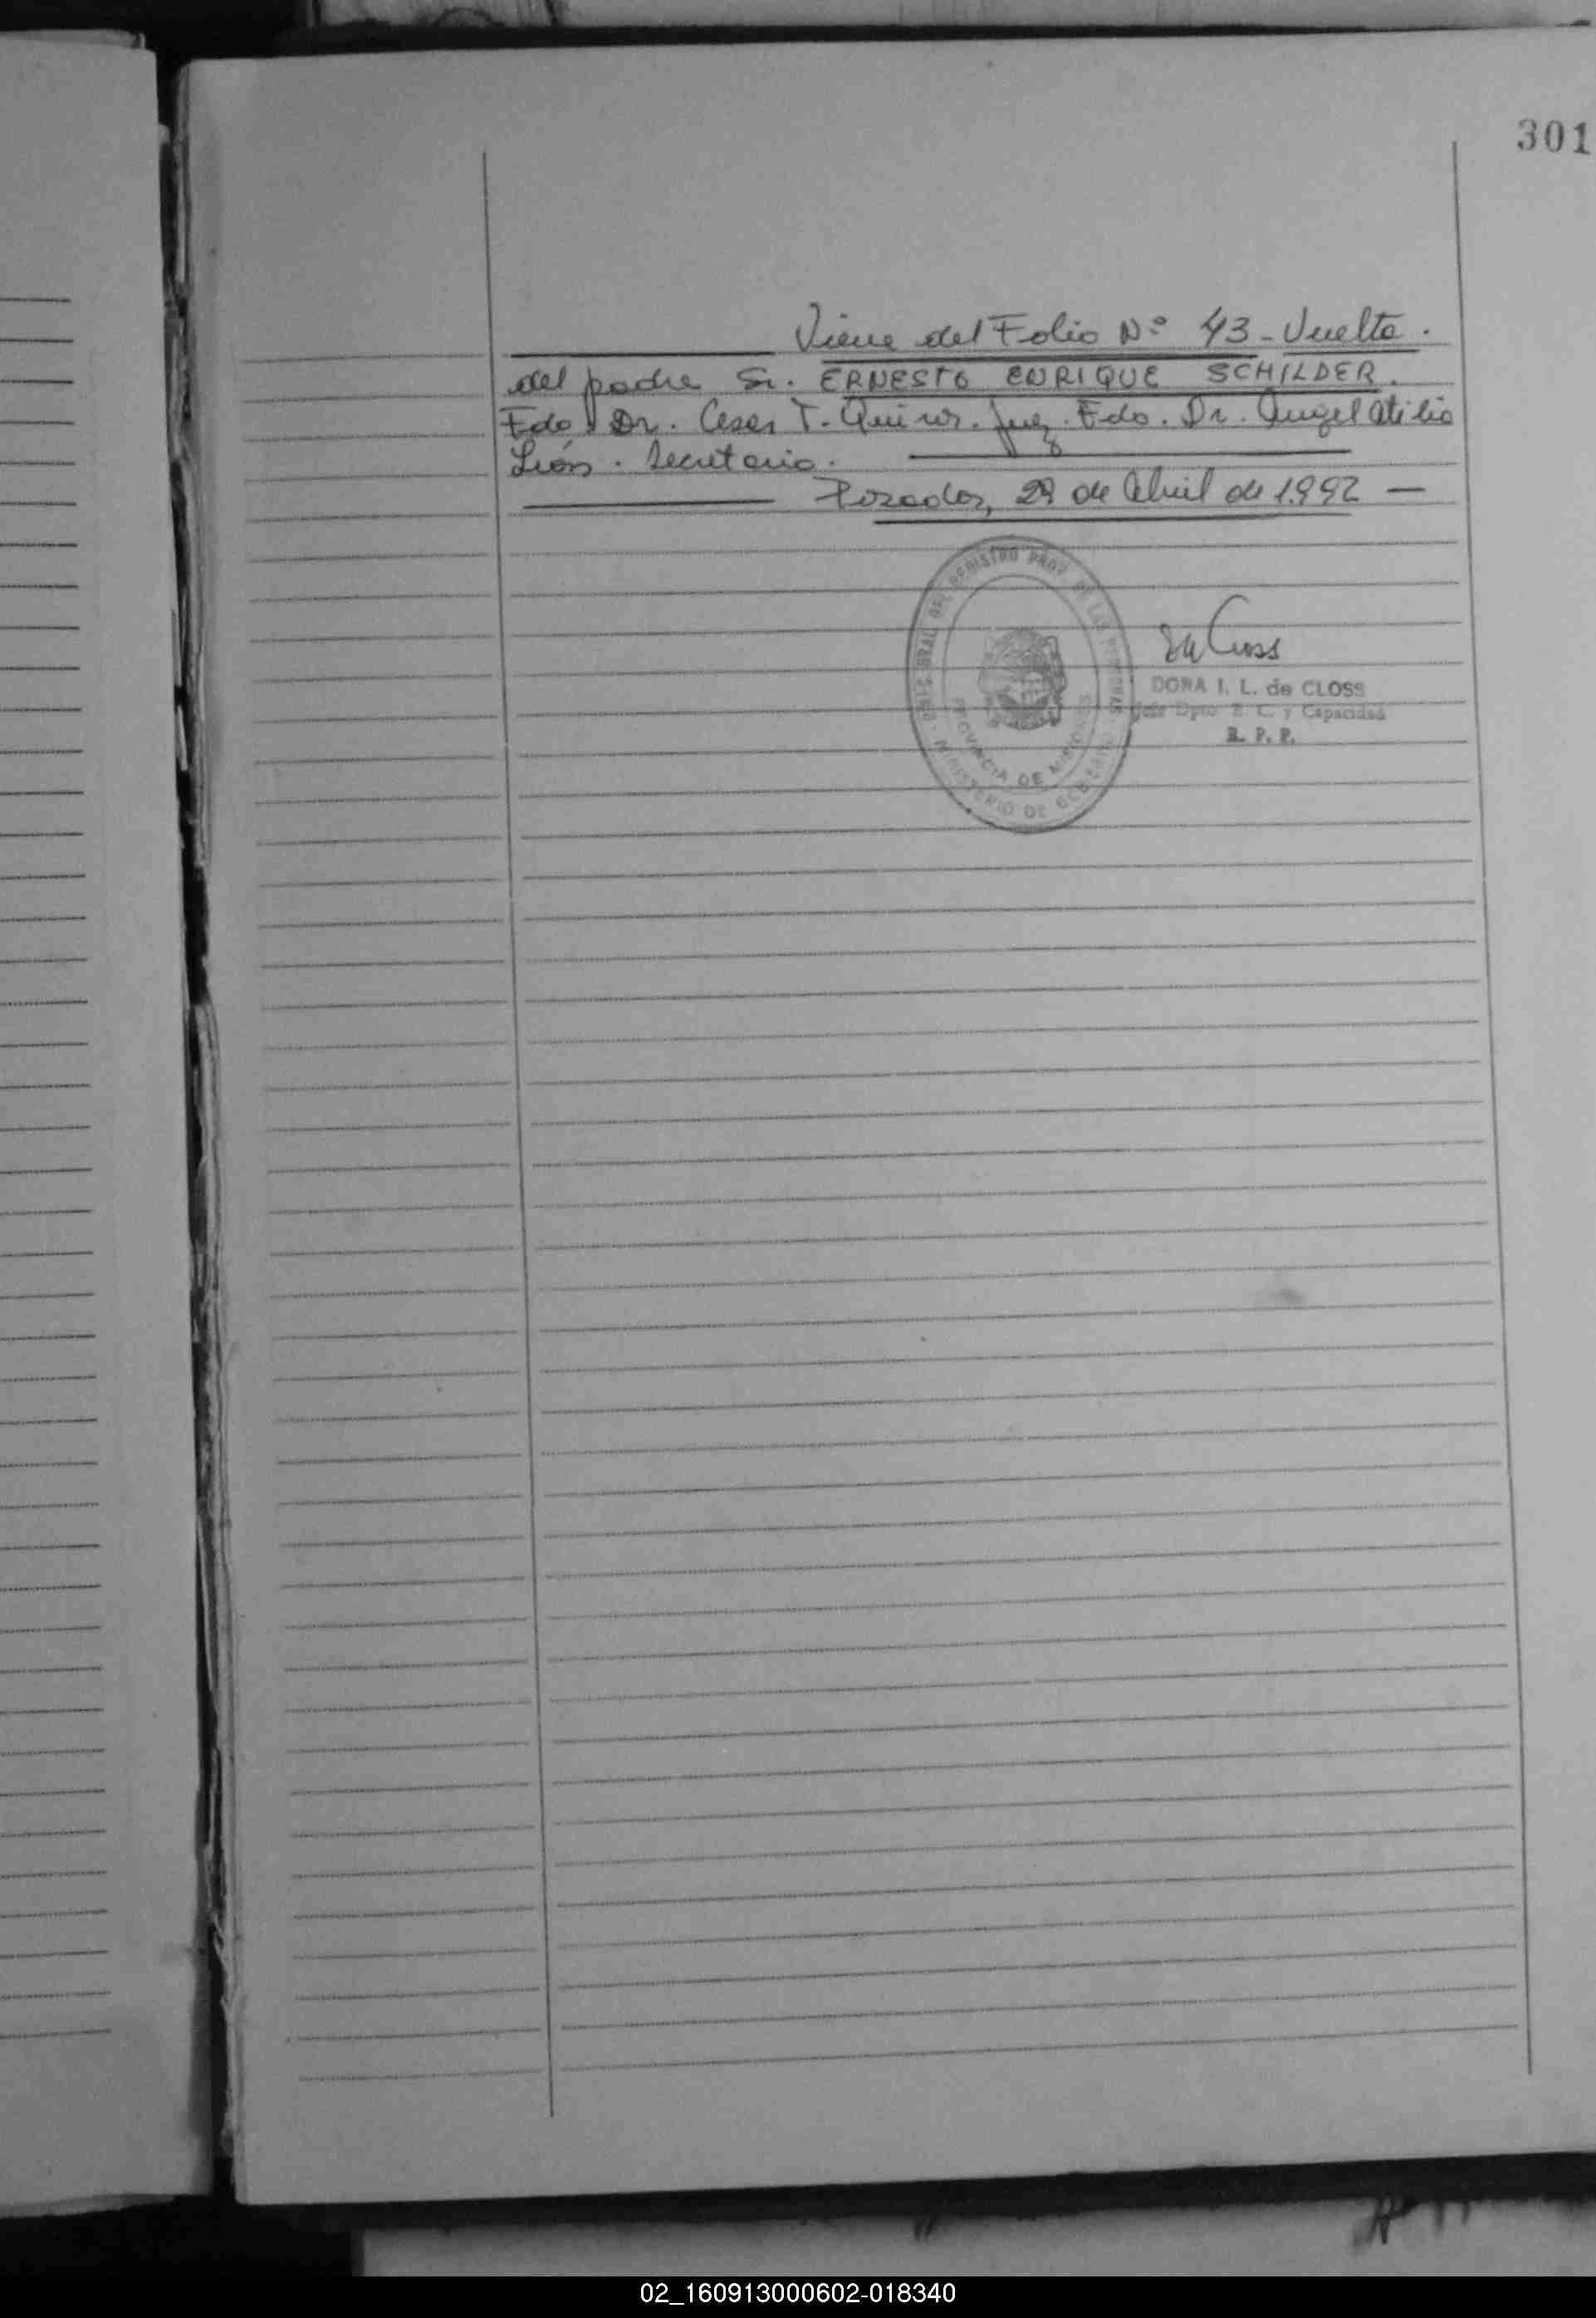 301
Viene del Folio Nº 43 - Vuelta.
del padre Sr. ERNESTO ENRIQUE SCHILDER.
Fdo Dr. Cesar T. Quiros. Juez. Fdo. Dr. Angel Atilio
León. Secretario.
Posadas, 29 de Abril de 1.992 —
DIREC. GRAL. DEL REGISTRO PROV. DE LAS PERSONAS
PROVINCIA DE MISIONES
MINISTERIO DE GOBIERNO
DORA I. L. de CLOSS
Jefe Dpto. E. C. y Capacidad
R. P. P.
02_160913000602-018340